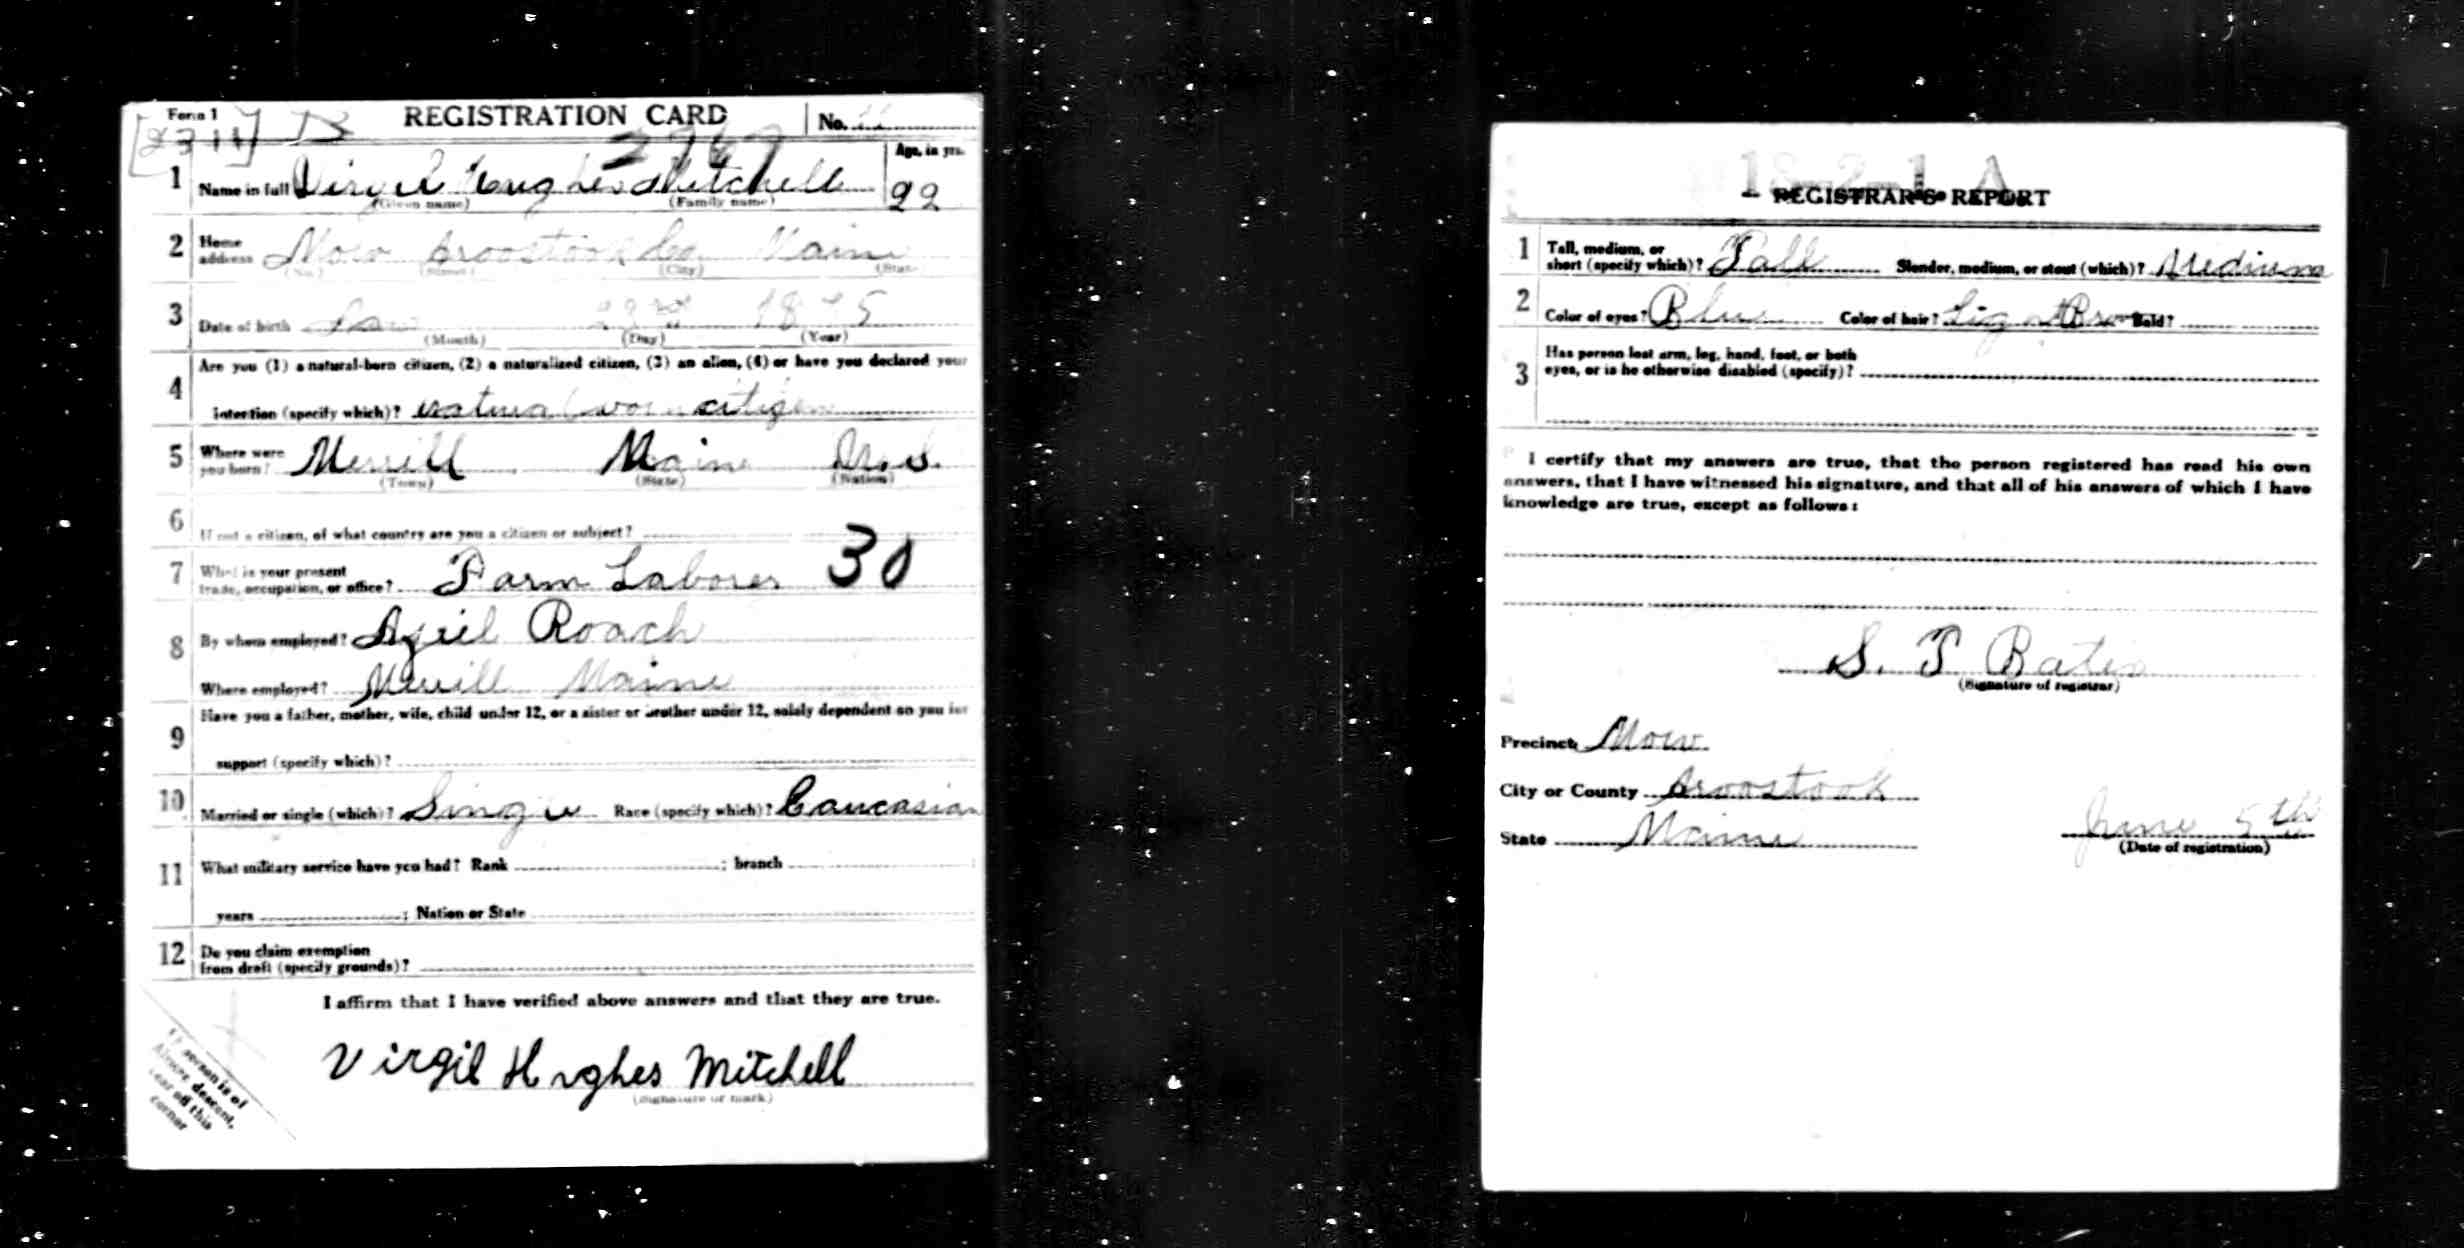 Form 1
REGISTRATION CARD
No.
2767
Age, in yrs.
1 Name in full Virgil Hughes Mitchell 22
(Given name) (Family name)
2 Home address Moro Aroostook Co Maine
(No.) (Street) (City) (State)
3 Date of birth 23rd
(Month) (Day) (Year)
4 Are you (1) a natural-born citizen, (2) a naturalized citizen, (3) an alien, (4) or have you declared your
intention (specify which)? natural born citizen
5 Where were you born? Merrill Maine U.S.
(Town) (State) (Nation)
6 If not a citizen, of what country are you a citizen or subject?
7 What is your present
trade, occupation, or office? Farm Laborer 30
8 By whom employed? Roach
Where employed? Merrill Maine
9 Have you a father, mother, wife, child under 12, or a sister or brother under 12, solely dependent on you for
support (specify which)?
10 Married or single (which)? Single Race (specify which)? Caucasian
11 What military service have you had? Rank ; branch
years ; Nation or State
12 Do you claim exemption
from draft (specify grounds)?
I affirm that I have verified above answers and that they are true.
Virgil Hughes Mitchell
(Signature or mark)
person is of
descent,
tear off this
corner
18-2-1 A
REGISTRAR'S REPORT
1 Tall, medium, or
short (specify which)? Tall Slender, medium, or stout (which)? Medium
2 Color of eyes? Blue Color of hair? Light Bro Bald?
3 Has person lost arm, leg, hand, foot, or both
eyes, or is he otherwise disabled (specify)?
I certify that my answers are true, that the person registered has read his own
answers, that I have witnessed his signature, and that all of his answers of which I have
knowledge are true, except as follows:
S. T Bates
(Signature of registrar)
Precinct Moro
City or County Aroostook
State Maine
June 5th
(Date of registration)